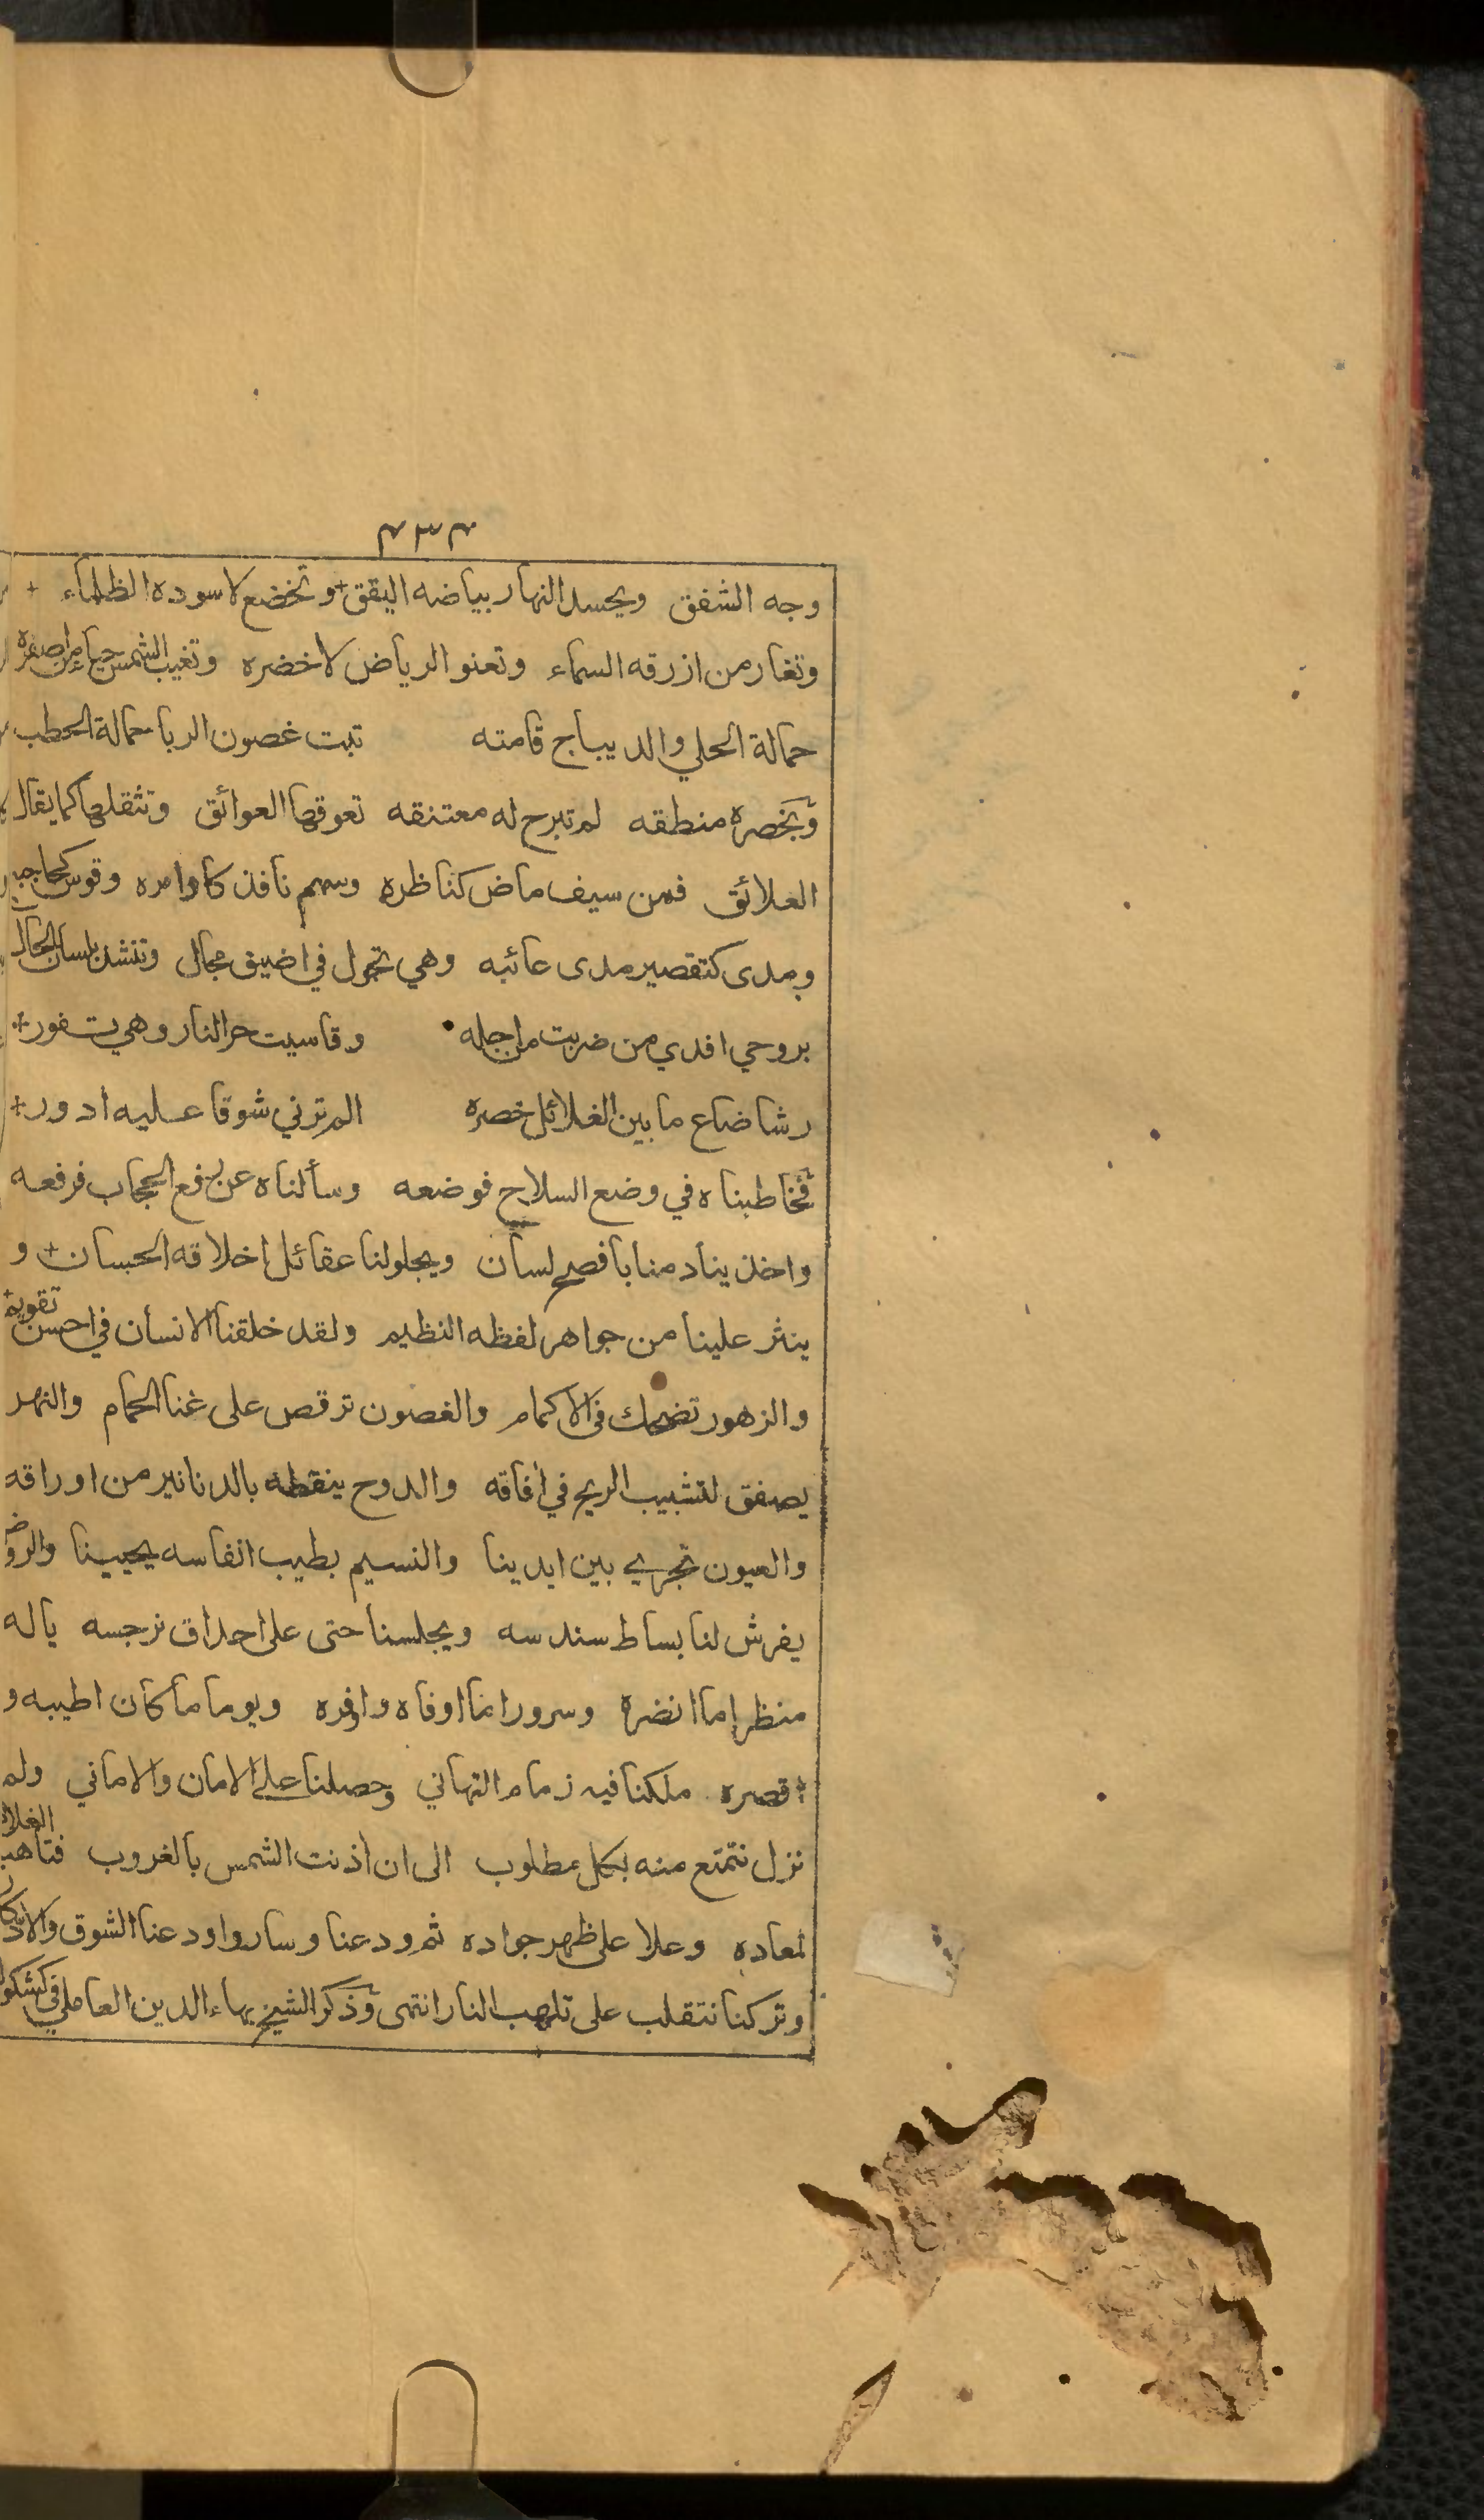 ٤٣٤
وجه الشفق ويحسد النهار بياضه اليقق + وتخضع لاسوده الظلماء +
وتغار من ازرقه السماء وتعنو الرياض لاخضره وتغيب الشمس حياء من اصفره
حمالة الحلي والديباج قامته تبت غصون الربا حمالة الحطب
وبخصره منطقه لم تبرح له معتنقه تعوقها العوائق وتثقلها كما يقال
العلائق فمن سيف ماض كناظره وسهم نافذ كاوامره وقوس كحاجبه
ومدى كتقصير مدى عائبه وهي تجول في اضيق مجال وتنشد بلسان الحال
بروحي افدي من ضربت من اجله وقاسيت حر النار وهي تفور +
رشا ضاع ما بين الغلائل خصره الم ترني شوقا عليه ادور +
فخاطبناه في وضع السلاح فوضعه وسألناه عن رفع الحجاب فرفعه
واخذ ينادمنا بافصح لسان ويجلو لنا عقائل اخلاقه الحسان + و
ينثر علينا من جواهر لفظه النظيم ولقد خلقنا الانسان في احسن تقويم
والزهور تضحك في الاكمام والغصون ترقص على غنا الحمام والنهر
يصفق لتشبيب الريح في افاقه والدوح ينقطه بالدنانير من اوراقه
والعيون تجري بين ايدينا والنسيم بطيب انفاسه يحيينا والروض
يفرش لنا بساط سندسه ويجلسنا حتى على احداق نرجسه ياله
منظرا ما انضره وسرورا ما اوفاه واوفره ويوما ما كان اطيبه و
اقصره ملكنا فيه زمام التهاني وحصلنا على الامان والاماني ولم
نزل نتمتع منه بكل مطلوب الى ان اذنت الشمس بالغروب فتاهب الغلام
لمعاده وعلا على ظهر جواده ثم ودعنا وسار واودعنا الشوق والادكار
وتركنا نتقلب على تلهب النار انتهى وذكر الشيخ بهاء الدين العاملي في كشكوله